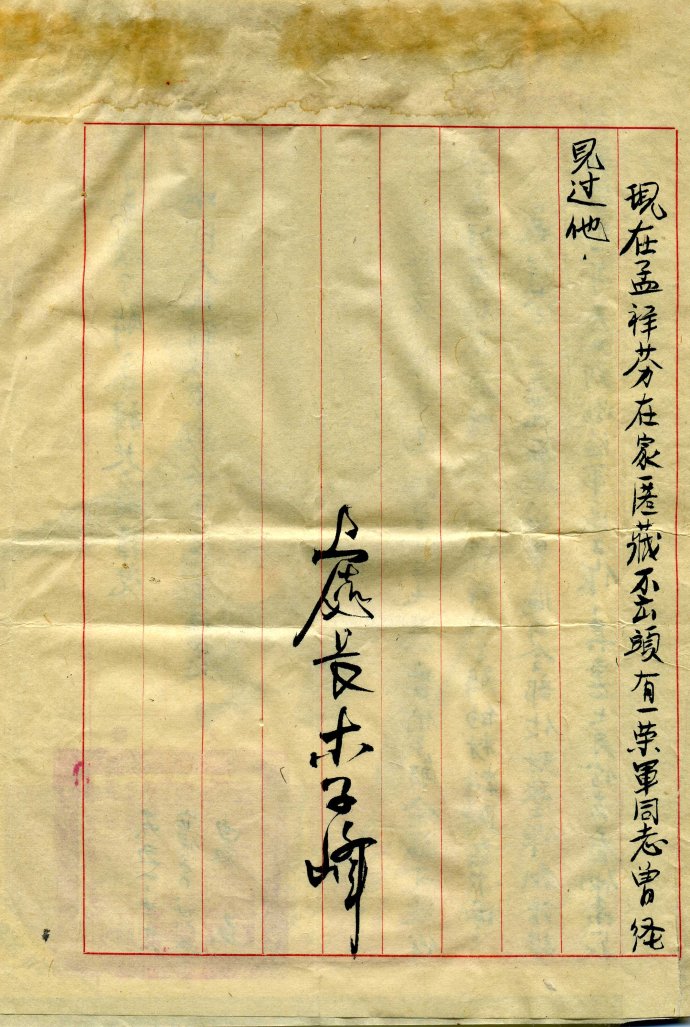 現在孟祥芬在家匿藏不出頭有一荣軍同志曾经
見过他.
上處長李峰